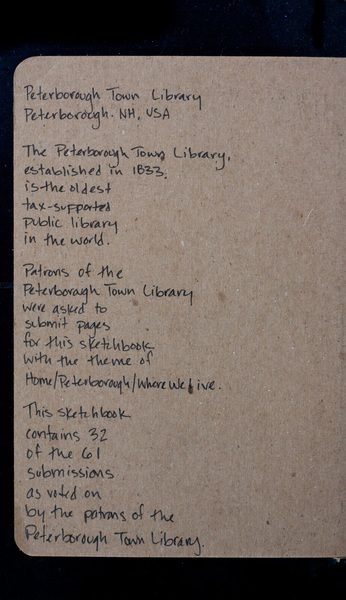 Peterborough Town Library
Peterborough. NH, USA
The Peterborough Town Library,
established in 1833,
is the oldest
tax-supported
public library
in the world.
Patrons of the
Peterborough Town Library
were asked to
submit pages
for this sketchbook
with the theme of
Home/Peterborough/Where We Live.
This sketchbook
contains 32
of the 61
submissions
as voted on
by the patrons of the
Peterborough Town Library.